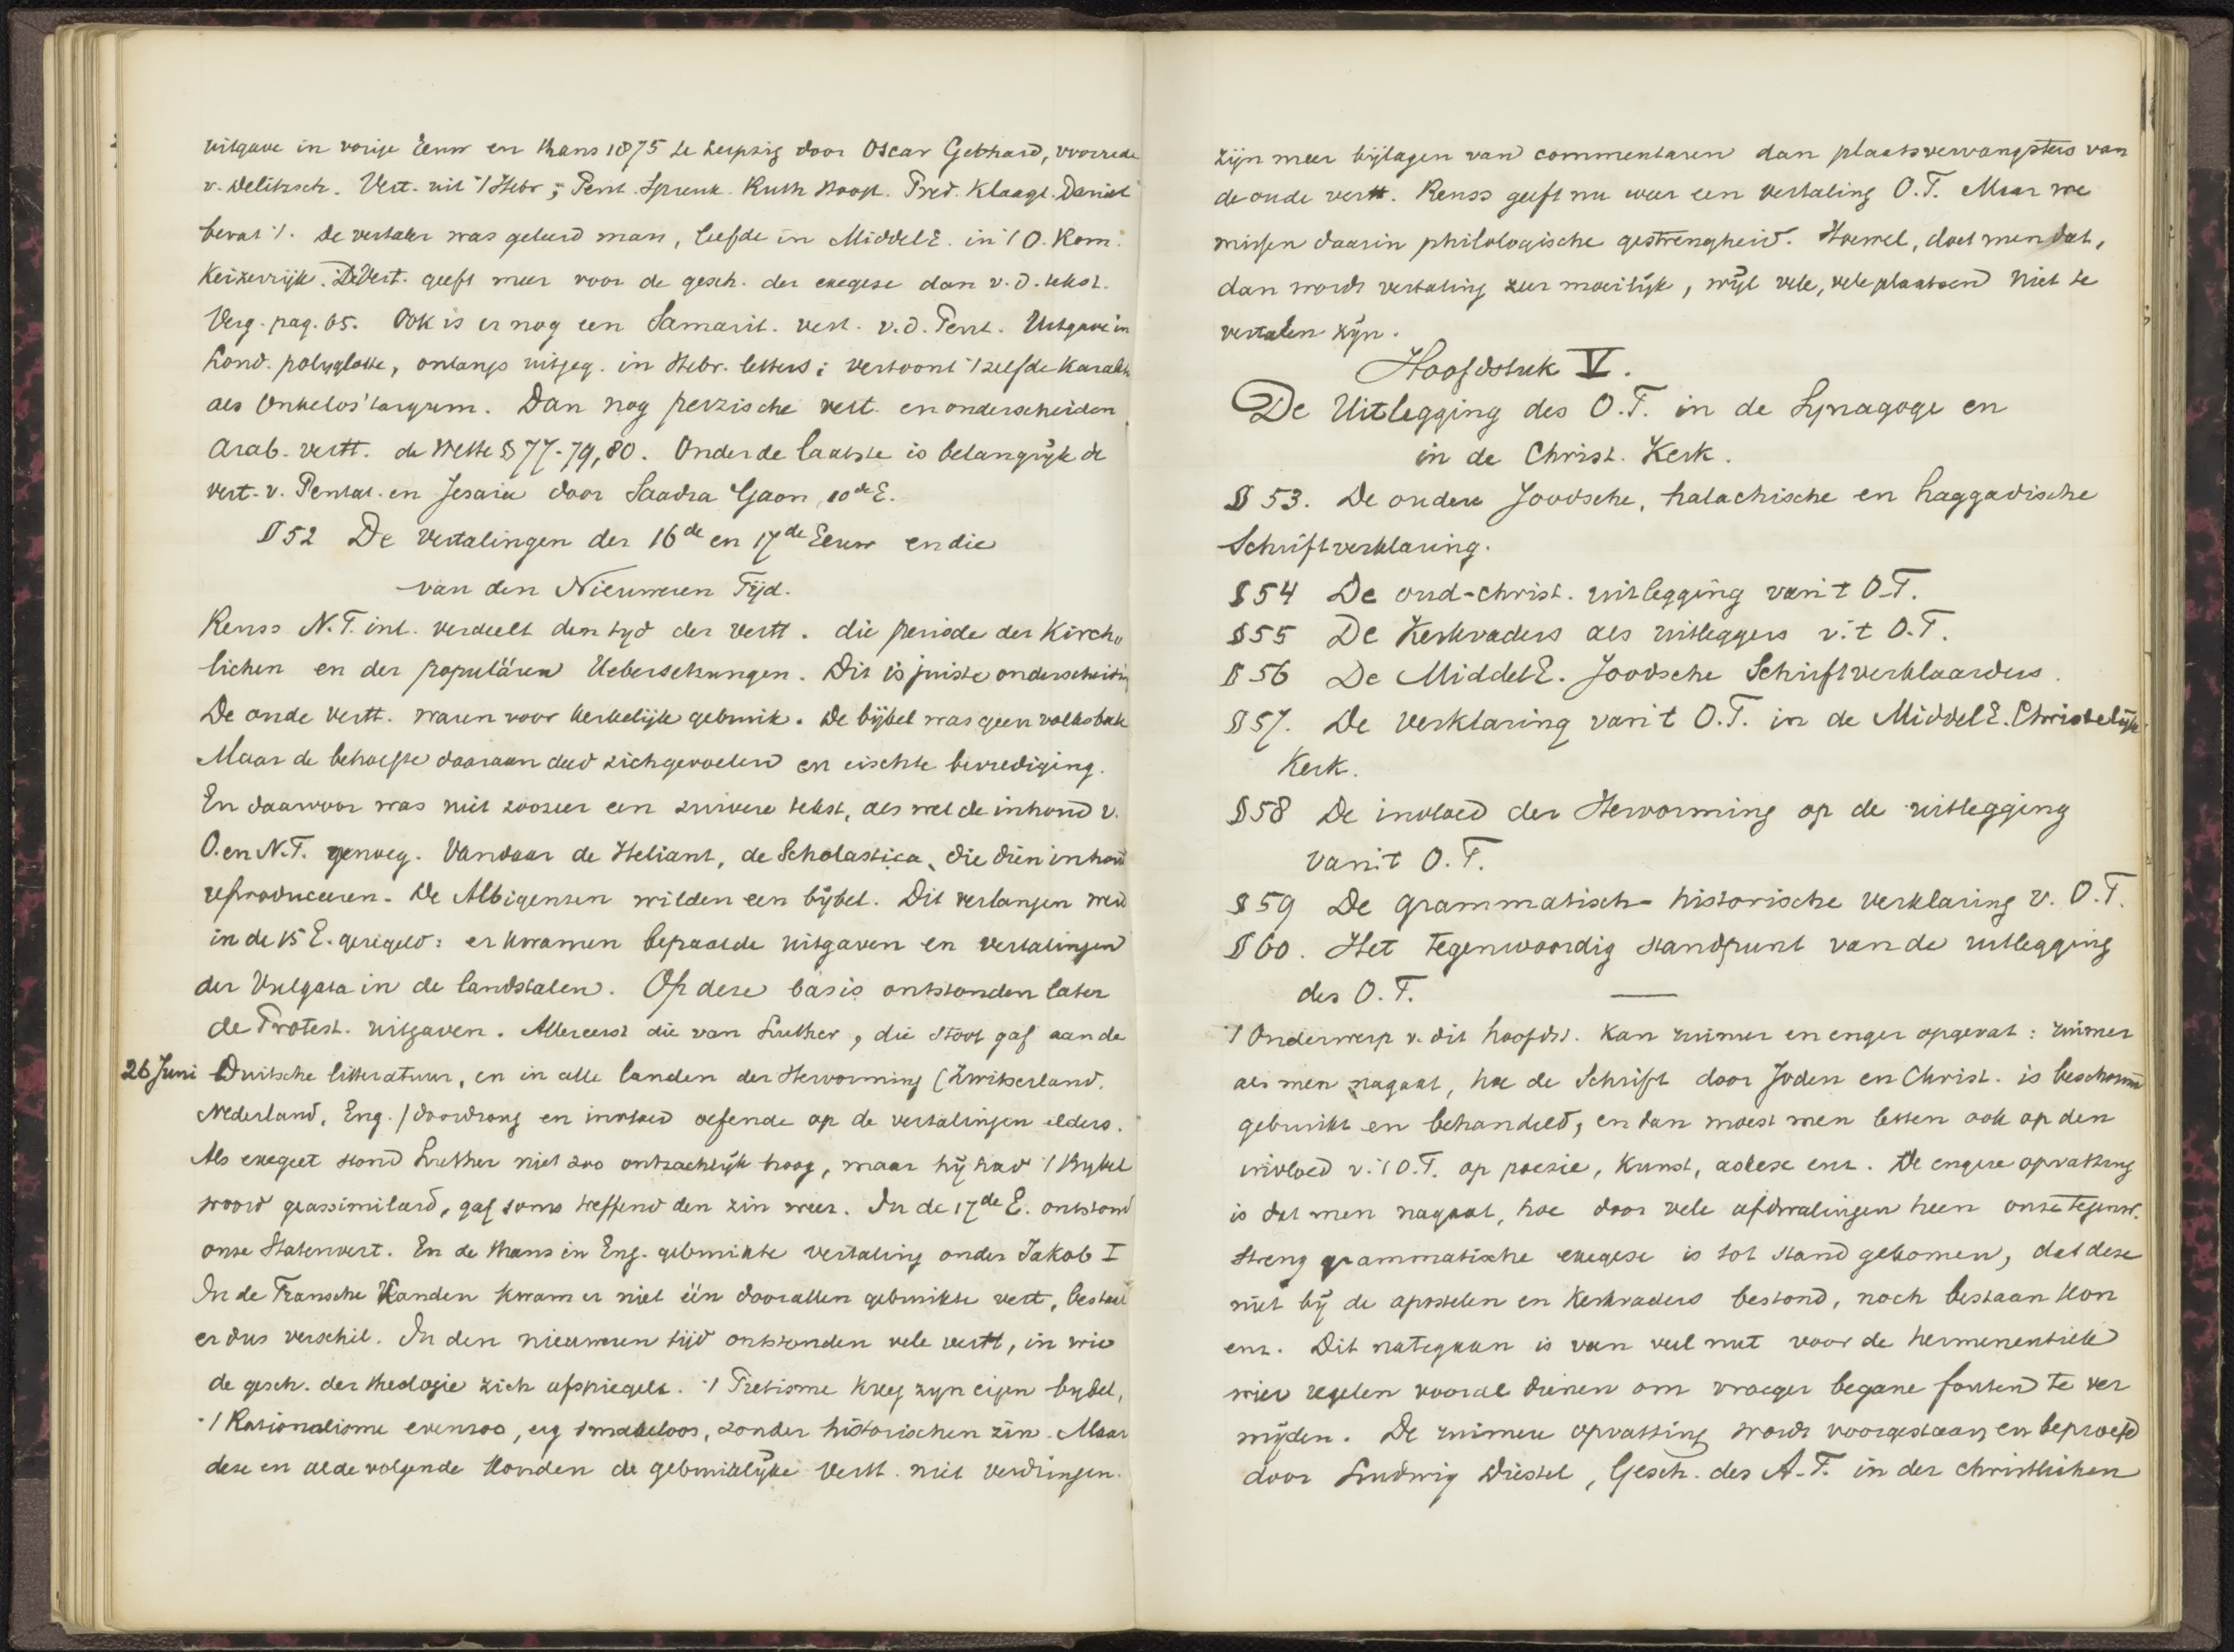 uitgave in vorige Eeuw en thans 1875 te Leipzig door Oscar Gebhard, voorrede
v. Delitzsch. Vert. uit 't Hebr; Pent. Spreuk. Ruth Hoogl. Pred. Klaagl. Daniel
bevat 't. De vertaler was geleerd man, leefde in MiddelE. in 't O. Rom.
Keizerrijk. De Vert. geeft meer voor de gesch. der exegese dan v. d. tekst.
Verg. pag. 65. Ook is er nog een Samarit. vert. v. d. Pent. Uitgave in
Lond. polyglotte, onlangs uitgeg. in Hebr. letters; vertoont 't zelfde karakt
als Onkelos' targum. Dan nog perzische vert. en onderscheiden
Arab. vertt. de Wette § 77-79, 80. Onder de laatste is belangrijk de
vert. v. Pentat. en Jesaia door Saadia Gaon, 10de E.
§ 52 De Vertalingen der 16de en 17de Eeuw en die
van den Nieuweren Tijd.
Reuss N.T. inl. verdeelt den tijd der vertt. die periode der Kirch-
lichen en der populären Uebersetzungen. Dit is juiste onderscheidin
De oude vertt. waren voor kerkelijk gebruik. De bijbel was geen volksboek
Maar de behoefte daaraan deed zich gevoelen en eischte bevrediging.
En daarvoor was niet zoozeer een zuivere tekst, als wel de inhoud v.
O. en N.T. genoeg. Vandaar de Heliant, de Scholastica, die dien inhoud
reproduceeren. De Albigensen wilden een bijbel. Dit verlangen werd
in de 15 E. geregeld: er kwamen bepaalde uitgaven en vertalingen
der Vulgata in de landstalen. Op deze basis ontstonden later
de Protest. uitgaven. Allereerst die van Luther, die stoot gaf aan de
26 Juni Duitsche litteratuur, en in alle landen der Hervorming (Zwitserland,
Nederland, Eng.) doordrong en invloed oefende op de vertalingen elders.
Als exegeet stond Luther niet zoo ontzachlijk hoog, maar hij had 't Bijbel
woord geassimileerd, gaf soms treffend den zin weer. In de 17de E. ontstond
onze Statenvert. En de thans in Eng. gebruikte vertaling onder Jakob I
In de Fransche landen kwam er niet één door allen gebruikte vert, bestaat
er dus verschil. In den nieuweren tijd ontstonden vele vertt, in wie
de gesch. der theologie zich afspiegelt. 't Piëtisme kreeg zijn eigen bijbel,
't Rationalisme evenzoo, erg smakeloos, zonder historischen zin. Maar
deze en alle volgende konden de gebruiklijke vertt. niet verdringen.
zijn meer bijlagen van commentaren dan plaatsvervangsters van
de oude vertt. Reuss geeft nu weer een vertaling O.T. Maar we
missen daarin philologische gestrengheid. Hoewel, doet men dat,
dan wordt vertaling zeer moeilijk, wijl vele, vele plaatsen niet te
vertalen zijn.
Hoofdstuk V.
De Uitlegging des O.T. in de Synagoge en
in de Christ. Kerk.
§ 53. De oudere Joodsche, halachische en haggadische
Schriftverklaring.
§ 54 De oud-christ. uitlegging van 't O.T.
§ 55 De Kerkvaders als uitleggers v. 't O.T.
§ 56 De MiddelE. Joodsche Schriftverklaarders.
§ 57. De verklaring van 't O.T. in de MiddelE. Christelijke
Kerk.
§ 58 De invloed der Hervorming op de uitlegging
van 't O.T.
§ 59 De grammatisch-historische verklaring v. O.T.
§ 60. Het tegenwoordig standpunt van de uitlegging
des O.T.
't Onderwerp v. dit hoofdst. kan ruimer en enger opgevat: ruimer
als men nagaat, hoe de Schrift door Joden en Christ. is beschouwd
gebruikt en behandeld, en dan moest men letten ook op den
invloed v. 't O.T. op poezie, kunst, ascese enz. De engere opvatting
is dat men nagaat, hoe door vele afdwalingen heen onze tegenw.
streng grammatische exegese is tot stand gekomen, dat deze
niet bij de apostelen en kerkvaders bestond, noch bestaan kon
enz. Dit nategaan is van veel nut voor de hermeneutiek
wier regelen vooral dienen om vroeger begane fouten te ver
mijden. De ruimere opvatting wordt voorgestaan en beproefd
door Ludwig Diestel, Gesch. des A.T. in der christlichen